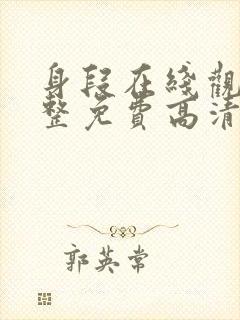 身段在綫觀
整免費高清
郭英常